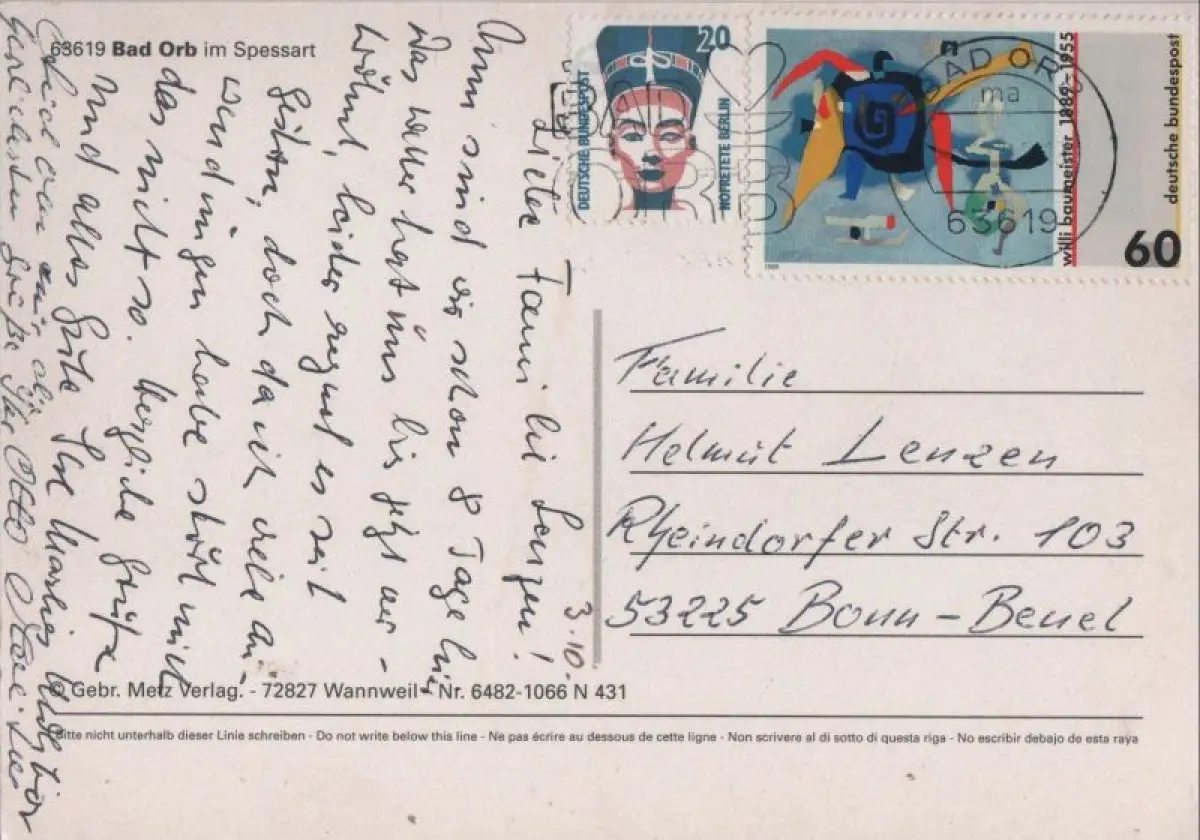 63619 Bad Orb im Spessart
20
DEUTSCHE BUNDESPOST
NOFRETETE BERLIN
BAD ORB
BAD ORB
ma
63619
willi baumeister 1889-1955
deutsche bundespost
60
1989
3.10.
Liebe Familie Lenzen!
Nun sind wir schon 8 Tage hier
Das Wetter hat uns bis jetzt ver-
wöhnt, leider regnet es seit
gestern, doch da ich viele An-
wendungen habe stört mich
das nicht so. Herzliche Grüße
und alles Gute Ihre
Grüße Otto
Familie
Helmut Lenzen
Rheindorfer Str. 103
53225 Bonn-Beuel
© Gebr. Metz Verlag. - 72827 Wannweil - Nr. 6482-1066 N 431
Bitte nicht unterhalb dieser Linie schreiben - Do not write below this line - Ne pas écrire au dessous de cette ligne - Non scrivere al di sotto di questa riga - No escribir debajo de esta raya